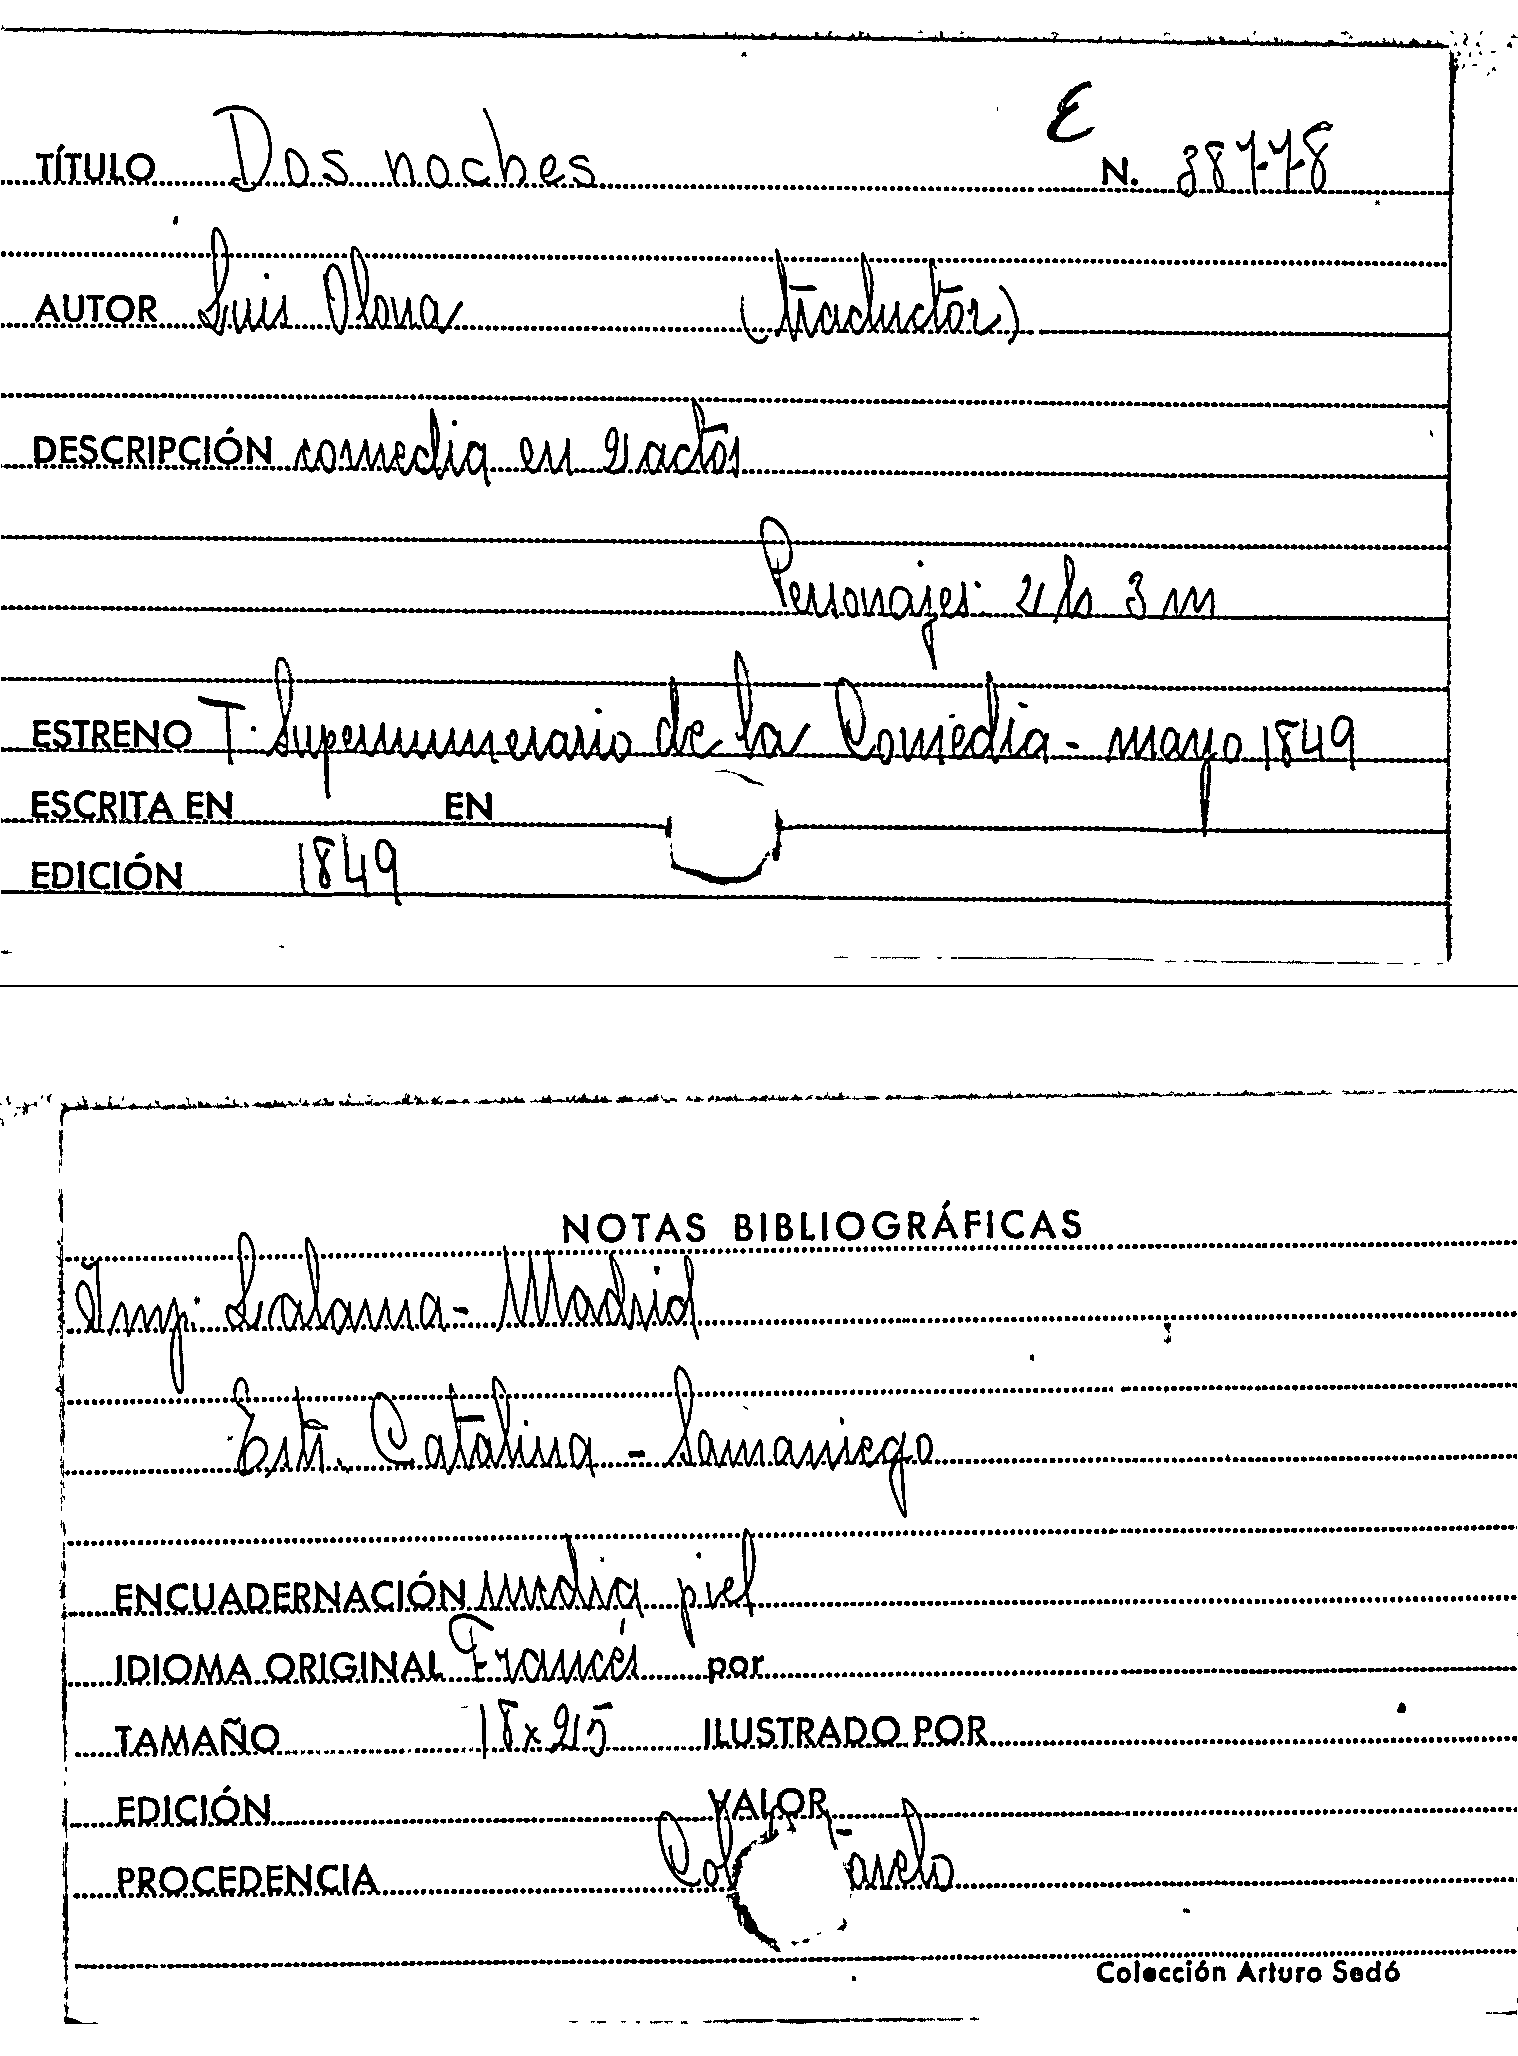 E
TÍTULO Dos noches N. 38778
AUTOR Luis Olona (traductor)
DESCRIPCIÓN comedia en 2 actos
Personajes: 2 h 3 m
ESTRENO T. Supernumerario de la Comedia - mayo 1849
ESCRITA EN EN
EDICIÓN 1849
NOTAS BIBLIOGRÁFICAS
Imp. Lalama - Madrid
Estr. Catalina - Samaniego
ENCUADERNACIÓN media piel
IDIOMA ORIGINAL Francés por
TAMAÑO 18 x 25 ILUSTRADO POR
EDICIÓN VALOR
PROCEDENCIA Col
Colección Arturo Sedó